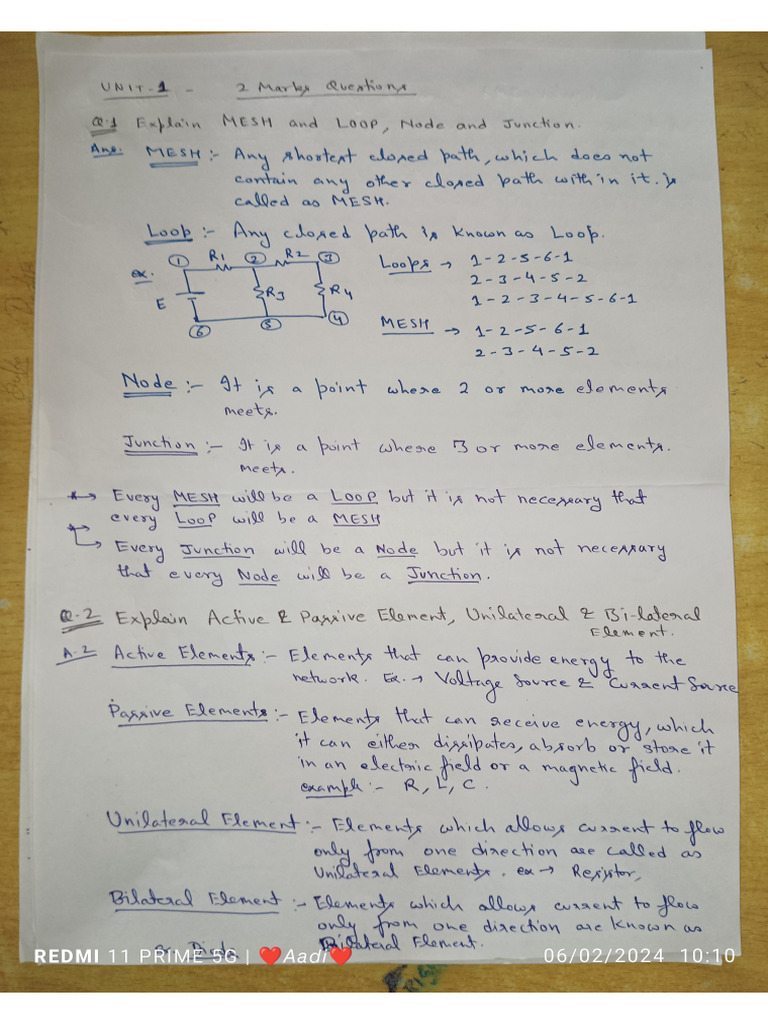 UNIT-1 - 2 Marks Questions
Q.1 Explain MESH and LOOP, Node and Junction.
Ans. MESH :- Any shortest closed path, which does not
contain any other closed path within it. is
called as MESH.
Loop :- Any closed path is known as Loop.
ex.
1 R1 2 R2 3
E R3 R4
6 5 4
Loops → 1-2-5-6-1
2-3-4-5-2
1-2-3-4-5-6-1
MESH → 1-2-5-6-1
2-3-4-5-2
Node :- It is a point where 2 or more elements
meets.
Junction :- It is a point where 3 or more elements.
meets.
*→ Every MESH will be a LOOP but it is not necessary that
every LOOP will be a MESH
*→ Every Junction will be a Node but it is not necessary
that every Node will be a Junction.
Q.2 Explain Active & Passive Element, Unilateral & Bi-lateral
Element.
A.2 Active Elements :- Elements that can provide energy to the
network. Ex. → Voltage Source & Current Source
Passive Elements :- Elements that can receive energy, which
it can either dissipates, absorb or store it
in an electric field or a magnetic field.
example :- R, L, C.
Unilateral Element :- Elements which allows current to flow
only from one direction are called as
Unilateral Elements. ex → Resistor,
Bilateral Element :- Elements which allows current to flow
only from one direction are known as
Bilateral Element.
REDMI 11 PRIME 5G | ❤️Aadi❤️ 06/02/2024 10:10